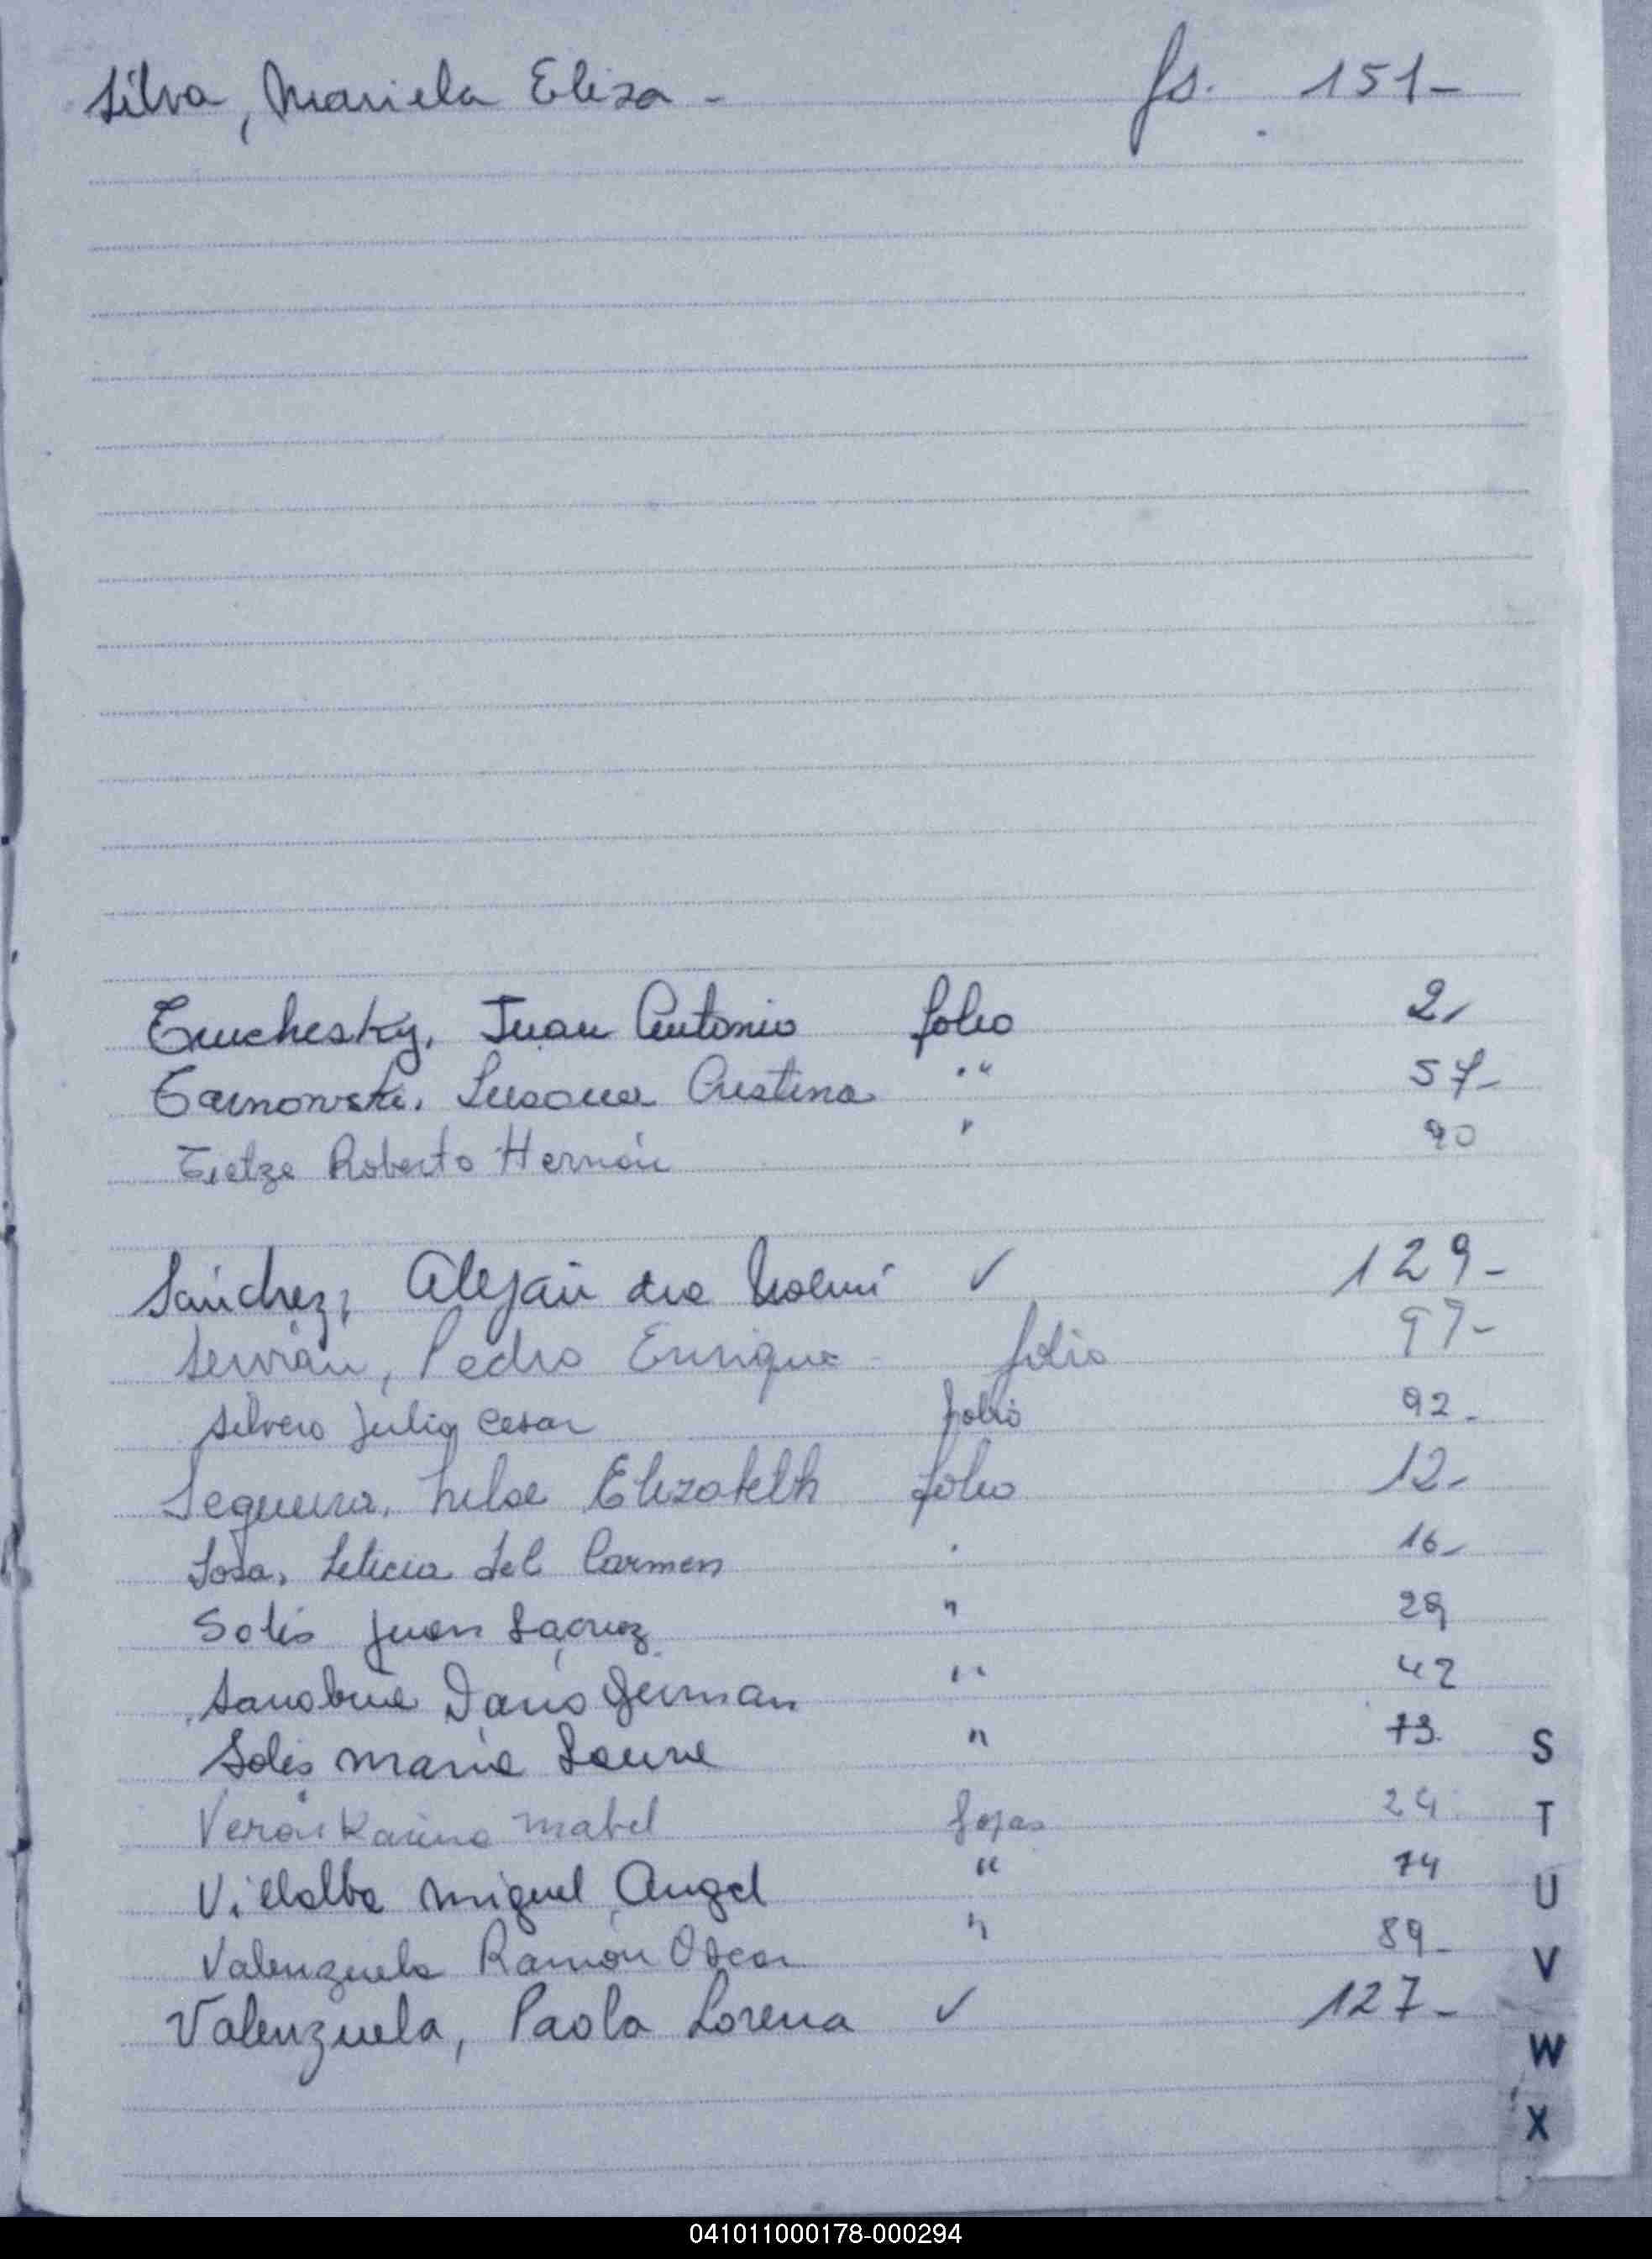 Silva, Mariela Eliza - fs. 151-
Juan Antonio folio 2,
Tarnowski, Susana Cristina " 57-
Tietze Roberto Hernán " 90
Sánchez, Alejandra Noemí ✓ 129-
Servián, Pedro Enrique - folio 97-
Silvero Julio Cesar folio 92-
Sequeira, Elizabeth folio 12-
Sosa, Leticia del Carmen " 16-
Solis Juan " 29
Dario German " 42
Solis Maria Laura " 73-
Verón Karina Mabel fojas 24
Villalba Miguel Angel " 74
Valenzuela Ramón Oscar " 89-
Valenzuela, Paola Lorena ✓ 127-
S
T
U
V
W
X
041011000178-000294